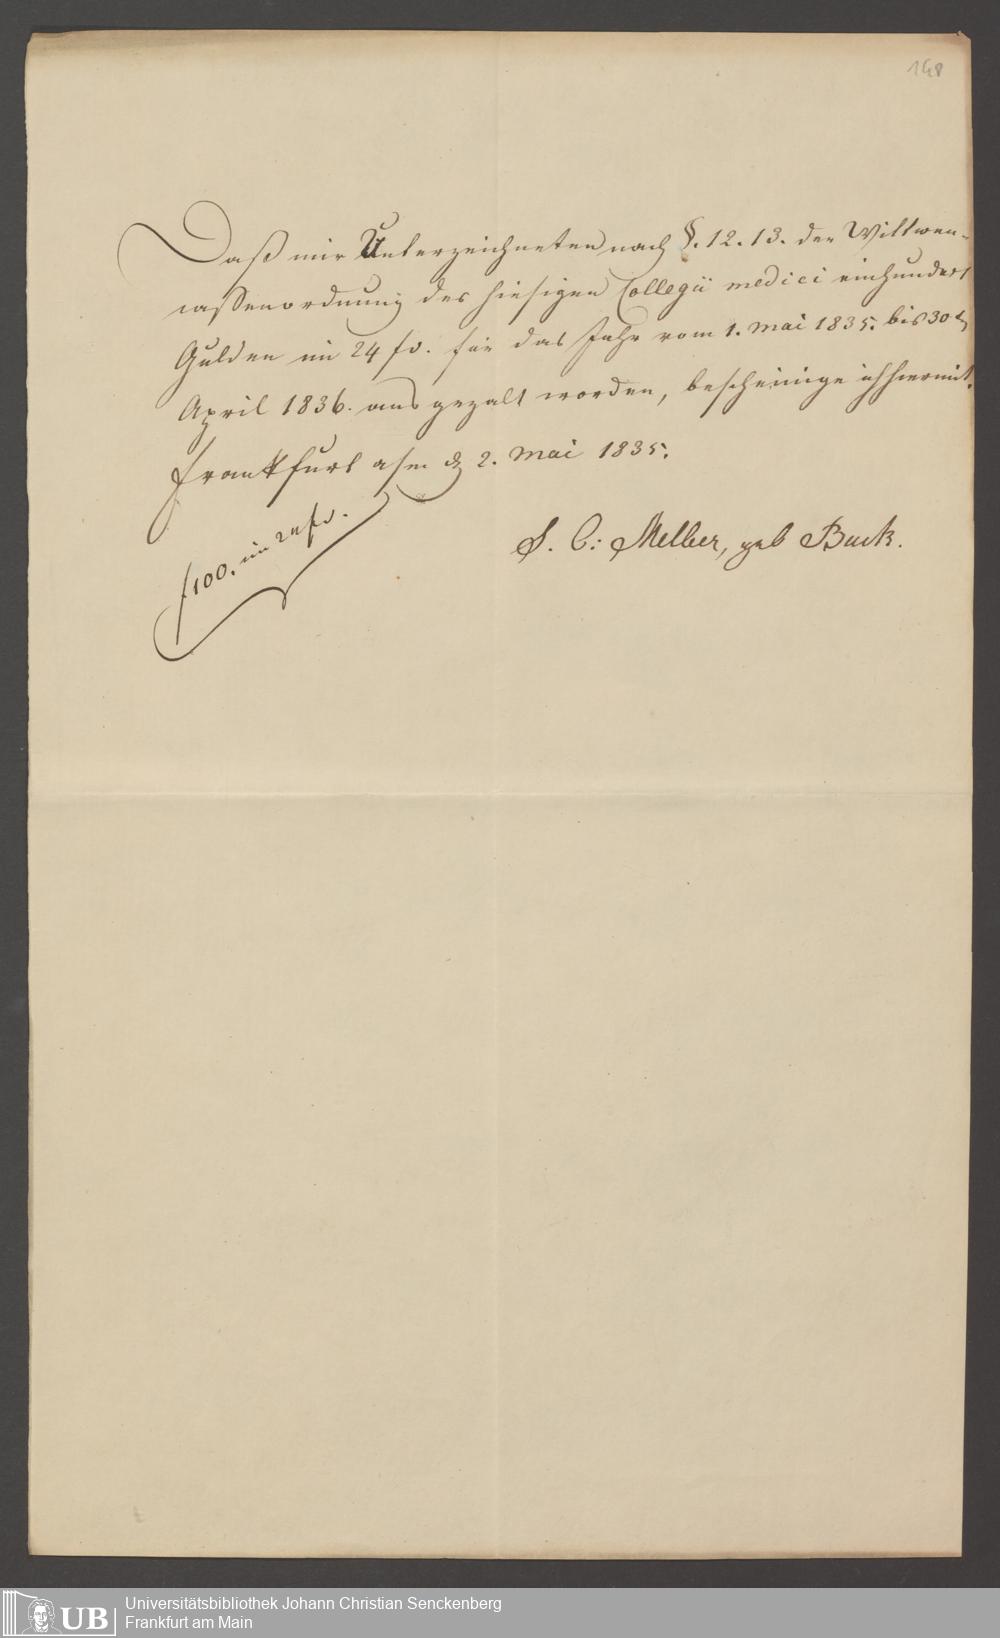 148
Daß mir Unterzeichneten nach §. 12. 13. der Wittwen-
cassenordnung des hiesigen Collegii medici einhundert
Gulden im 24 fs. für das Jahr vom 1. Mai 1835. bis 30
April 1836. ausgezalt worden, bescheinige ich hiermit.
Frankfurt a/m d 2. Mai 1835.
S. C: Melber, geb Buck.
f100. im 24 fs.
UB
Universitätsbibliothek Johann Christian Senckenberg
Frankfurt am Main